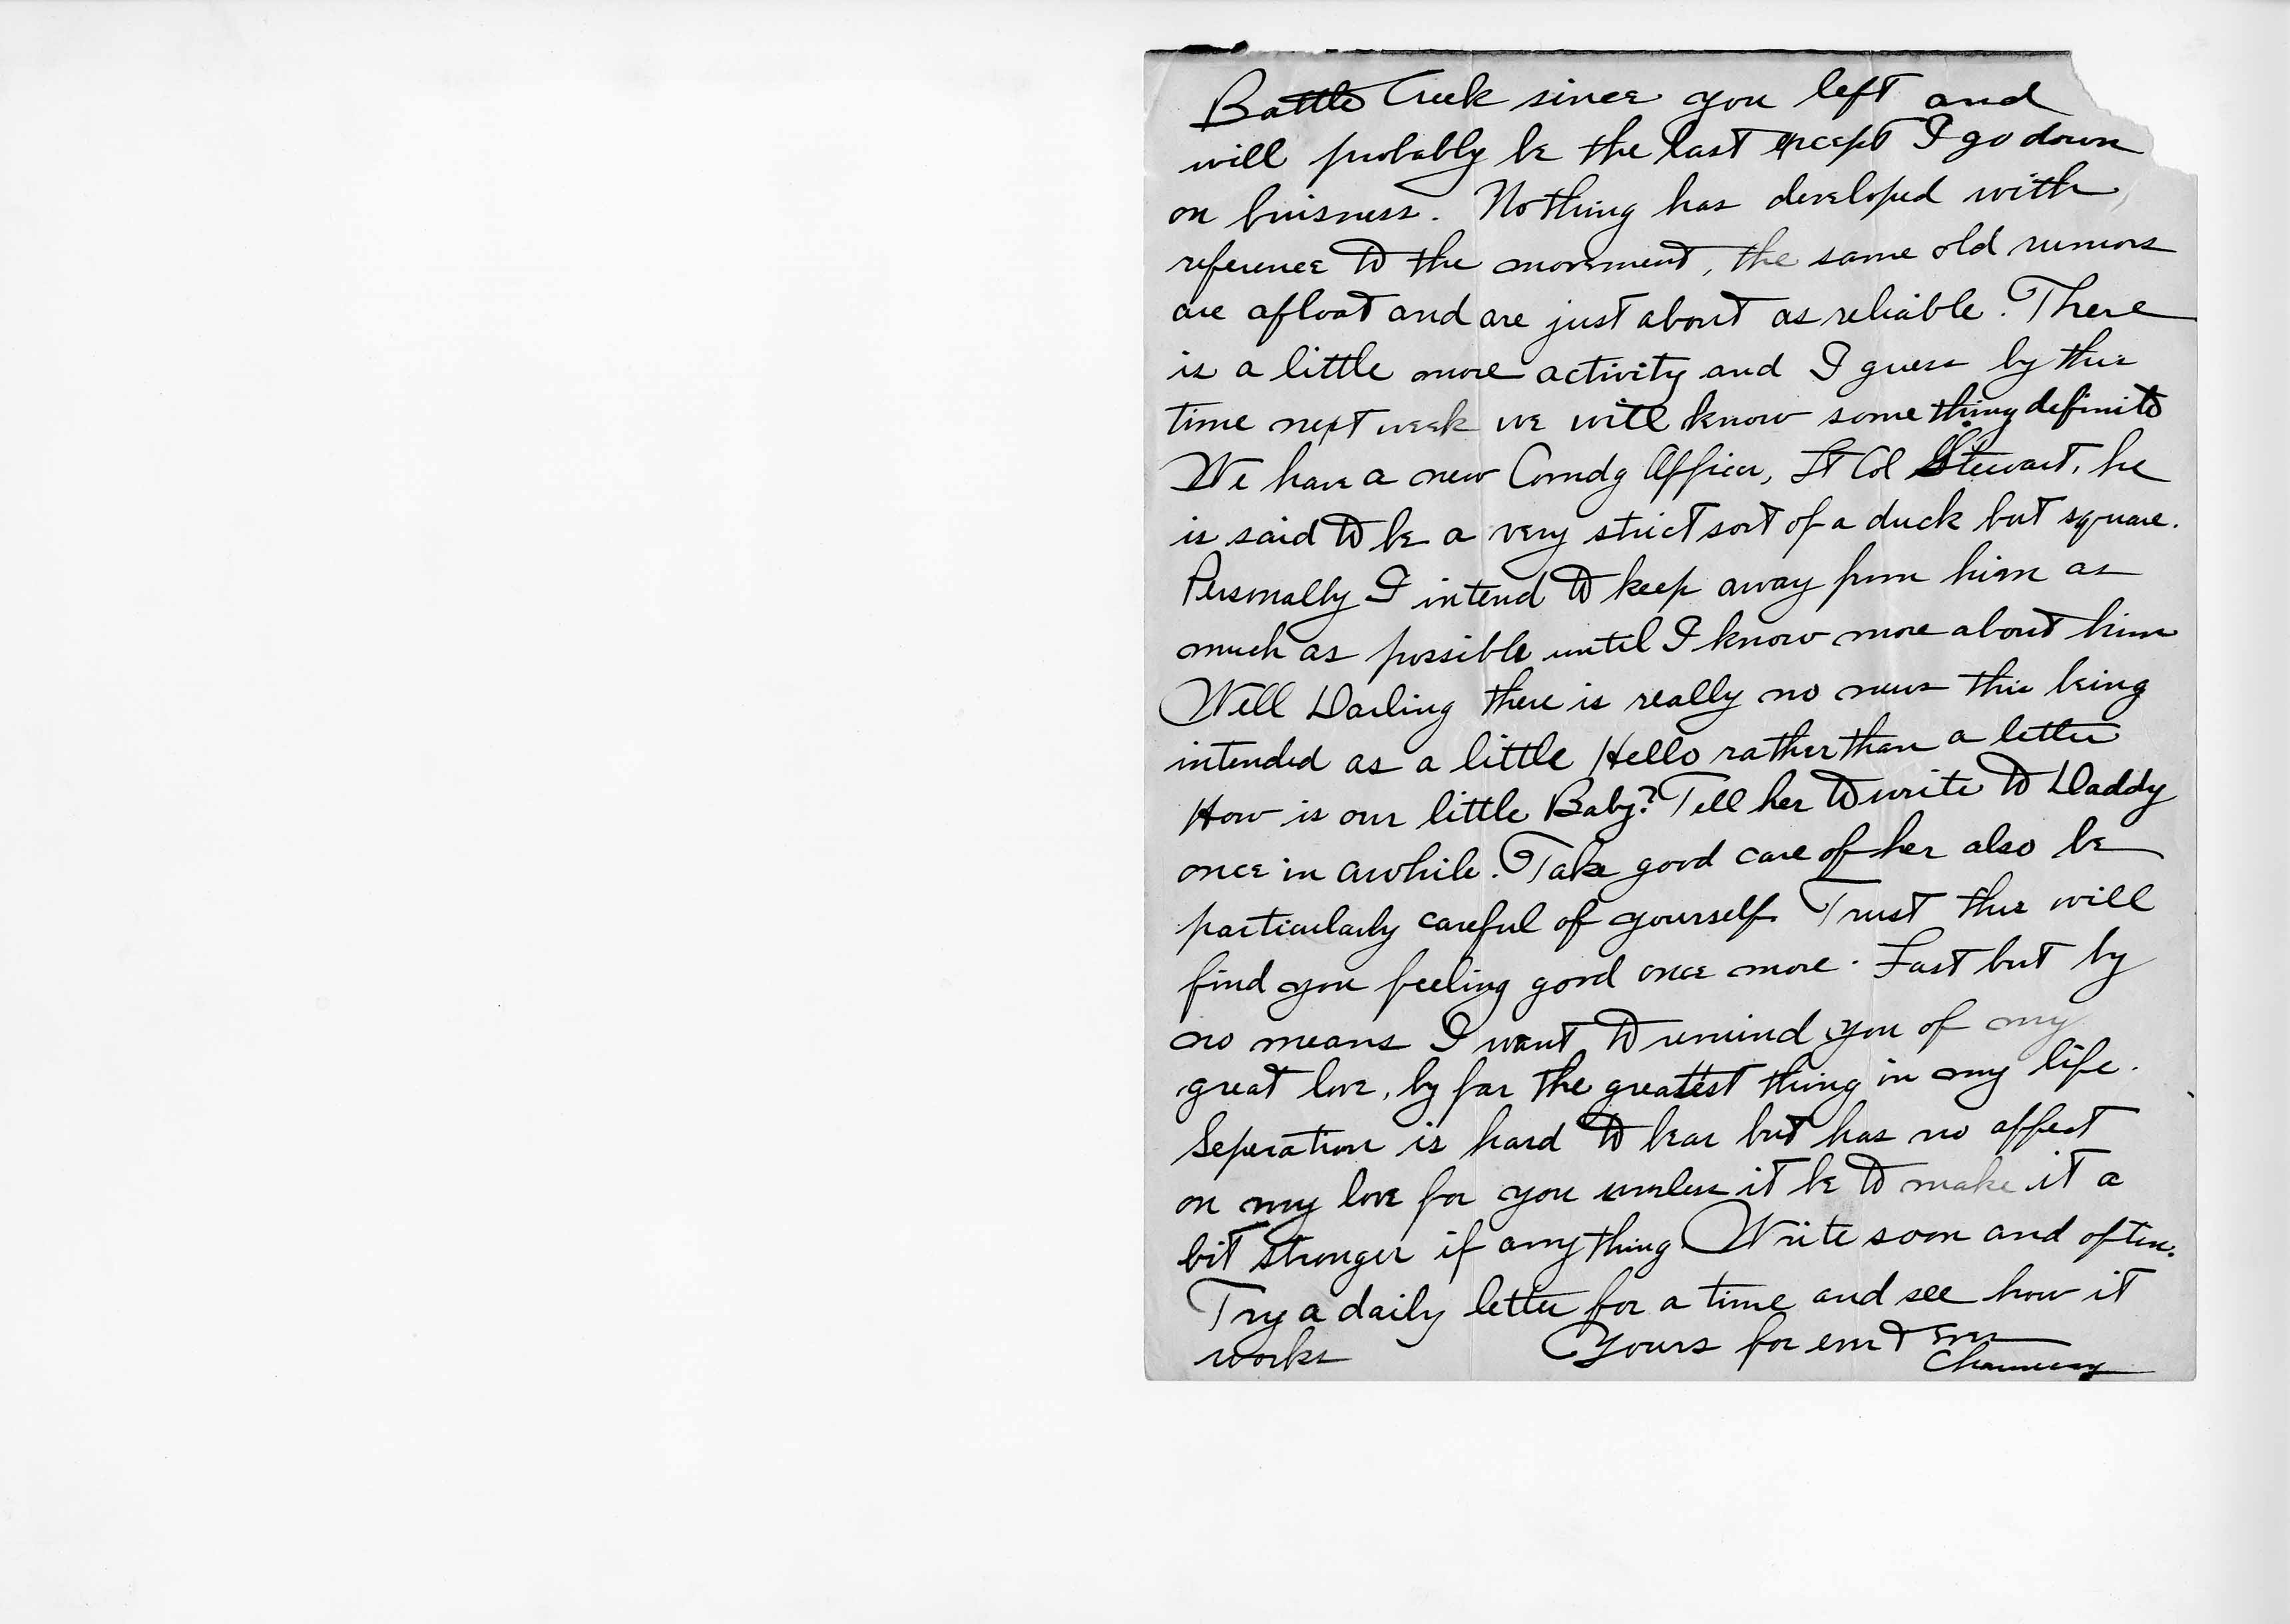 Battle Creek since you left and
will probably be the last except I go down
on buisness. Nothing has developed with
reference to the movement, the same old rumors
are afloat and are just about as reliable. There
is a little more activity and I guess by this
time next week we will know something definite
We have a new Comdg Officer, Lt Col Stewart, he
is said to be a very strict sort of a duck but square.
Personally I intend to keep away from him as
much as possible until I know more about him
Well Darling there is really no news this being
intended as a little Hello rather than a letter
How is our little Baby? Tell her to write to Daddy
once in awhile. Take good care of her also be
particularly careful of yourself. Trust this will
find you feeling good once more. Last but by
no means I want to remind you of my
great love, by far the greatest thing in my life.
Seperation is hard to bear but has no affect
on my love for you unless it be to make it a
bit stronger if anything. Write soon and often.
Try a daily letter for a time and see how it
works Yours for ever & ever
Chauncey